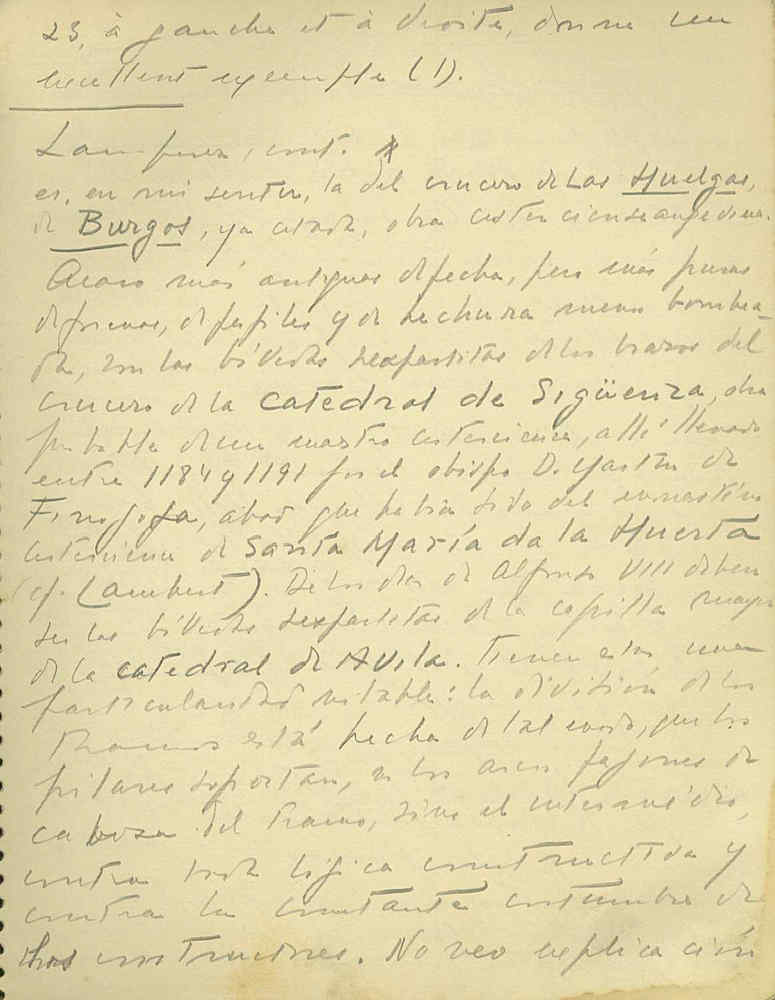 23, à gauche et à droite, donne un
excellent exemple (1).
Lamperez, cont.
es, en mi sentir, la del crucero de Las Huelgas,
de Burgos, ya citada, obra cisterciense angevina.
Acaso más antiguas de fecha, pero más puras
de formas, de perfiles y de hechura menos bombea-
da, son las bóvedas sexpartitas de los brazos del
crucero de la catedral de Sigüenza, obra
probable de un maestro cisterciense, allí llevado
entre 1184 y 1191 por el obispo D. Martín de
Finojosa, abad que había sido del monasterio
cisterciense de Santa María da la Huerta
(cf. Lambert). De los días de Alfonso VIII deben
ser las bóvedas sexpartitas de la capilla mayor
de la catedral de Avila. Tienen estas una
particularidad notable: la división de los
tramos está hecha de tal modo, que los
pilares soportan, no los arcos fajones de
cabeza del tramo, sino el intermedio,
contra toda lógica constructiva y
contra la constante costumbre de
los constructores. No veo explicación